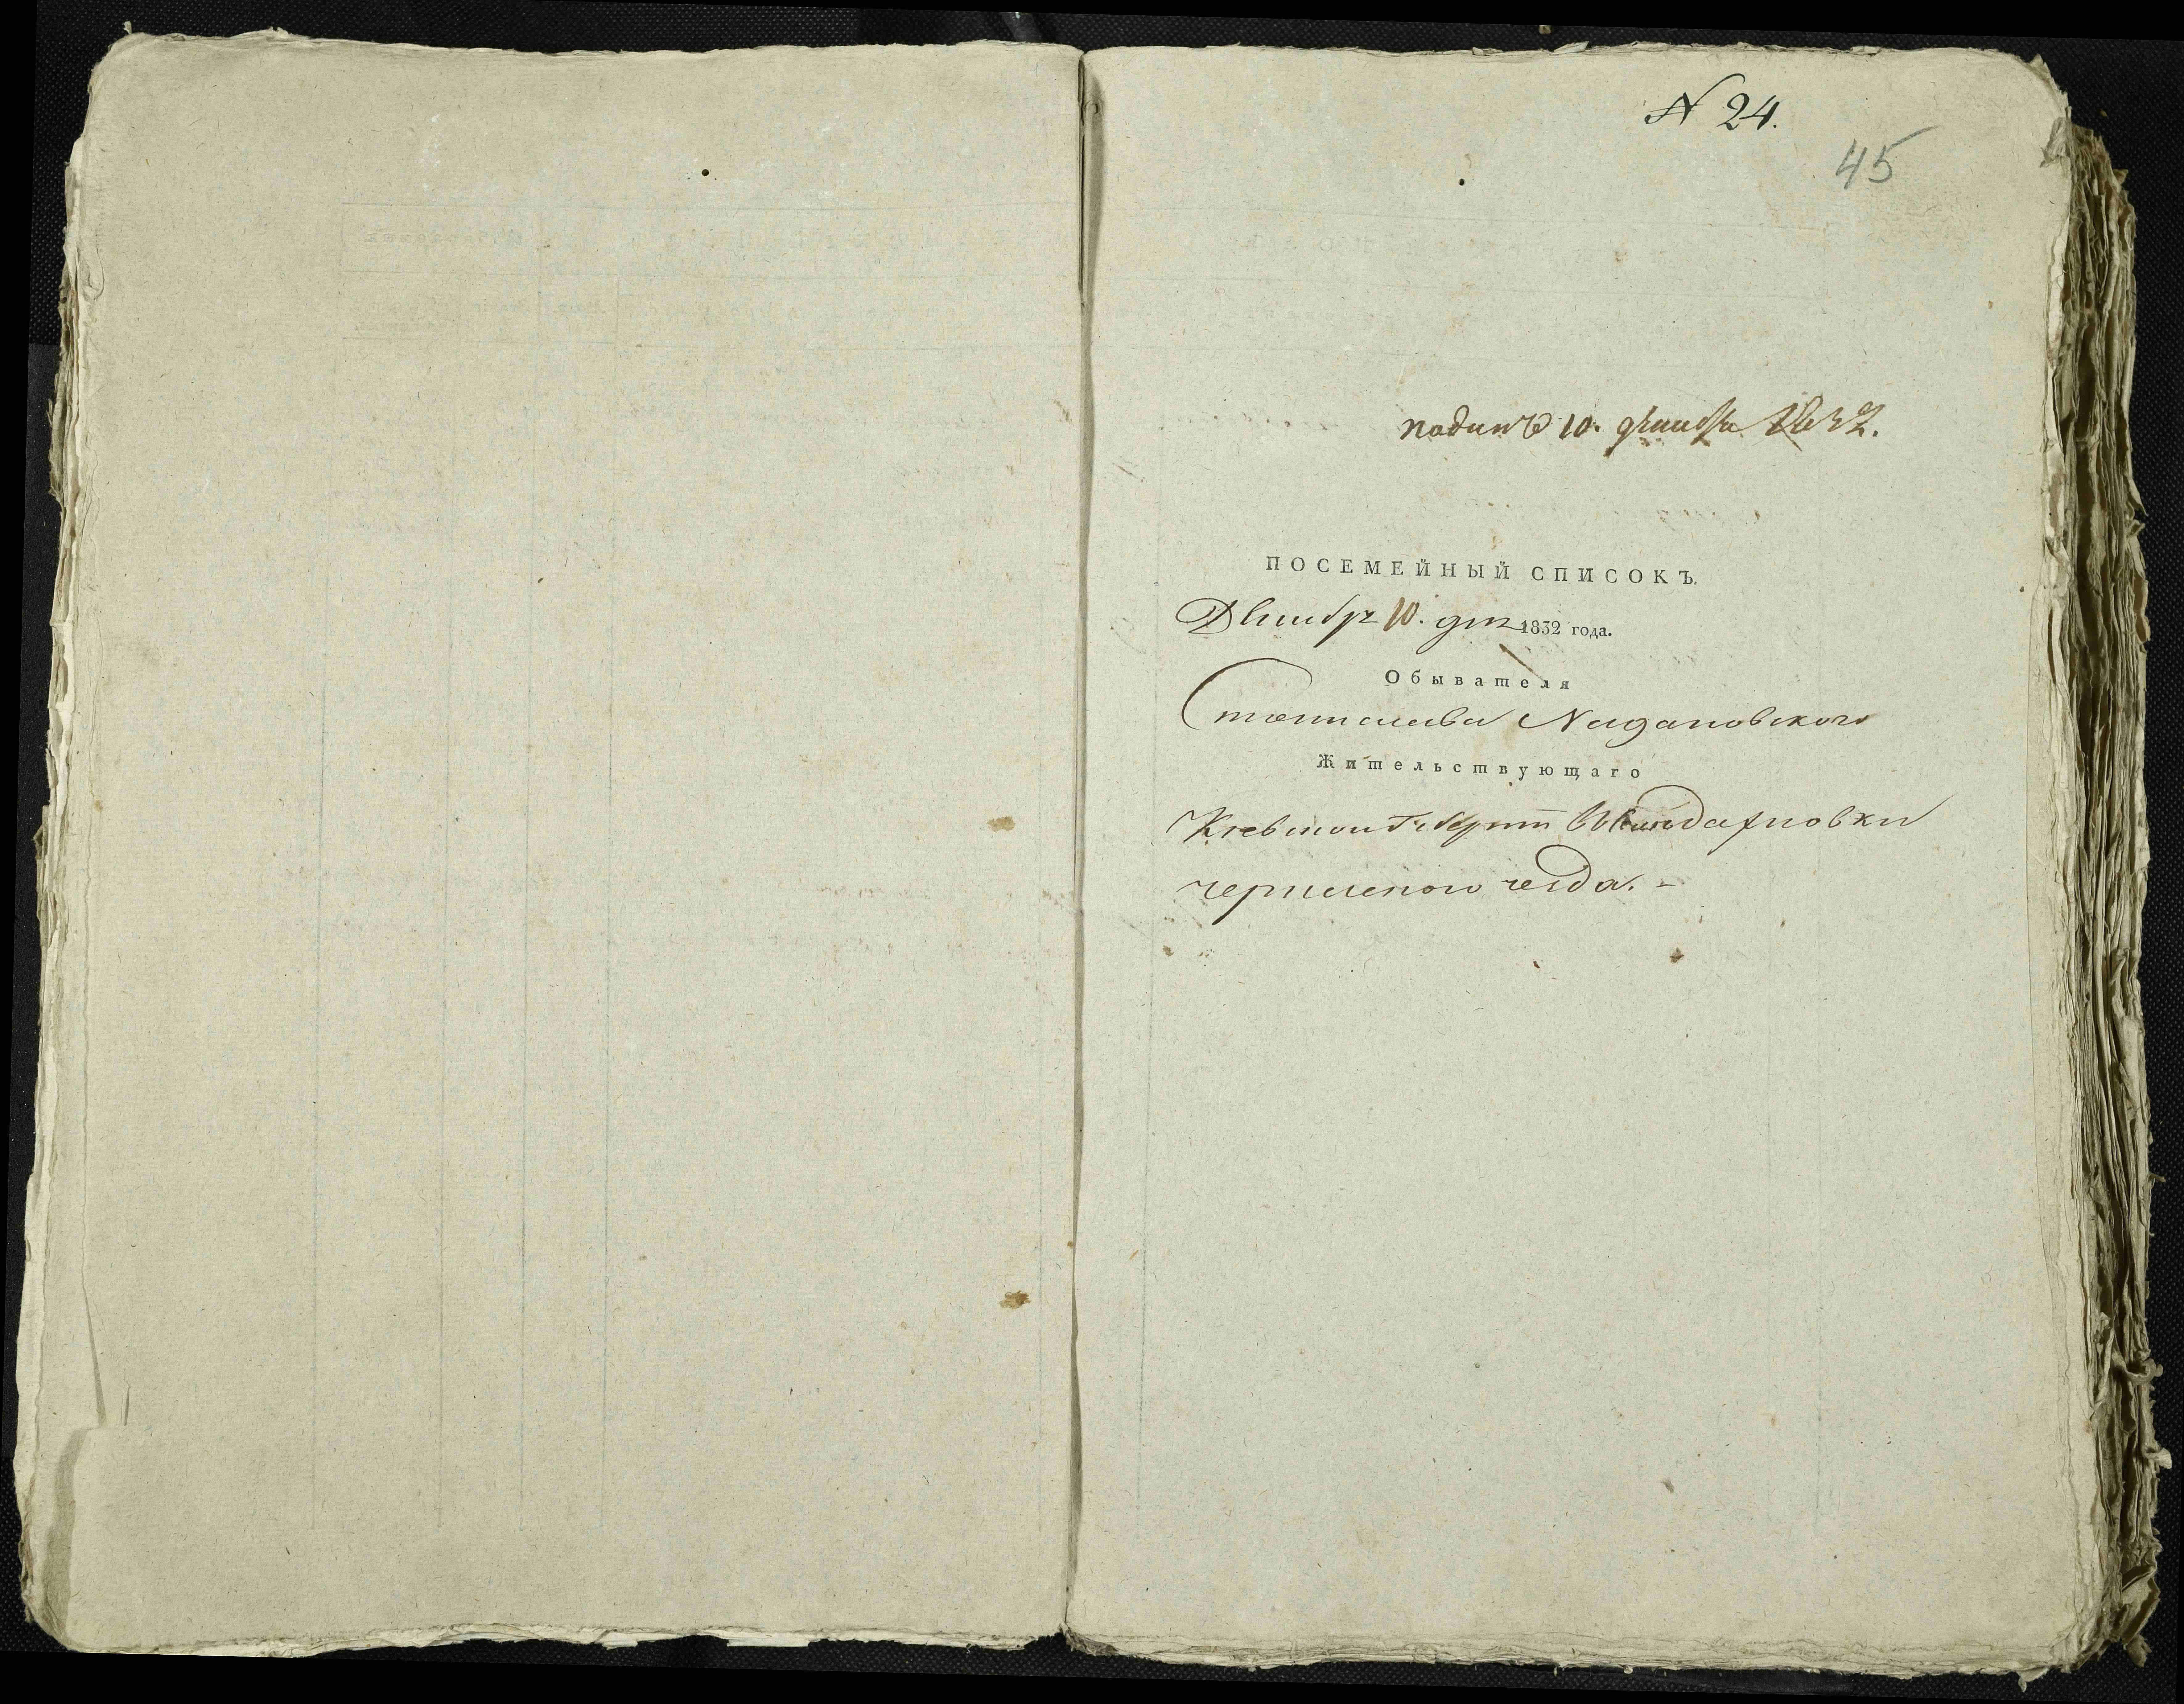 N 24.
45
поданъ 10. декабря 1832.
ПОСЕМЕЙНЫЙ СПИСОКЪ.
Декабря 10. дня 1832 года.
Обывателя
Станислава Надановского
Жительствующаго
Киевской Губерни
уезда. -